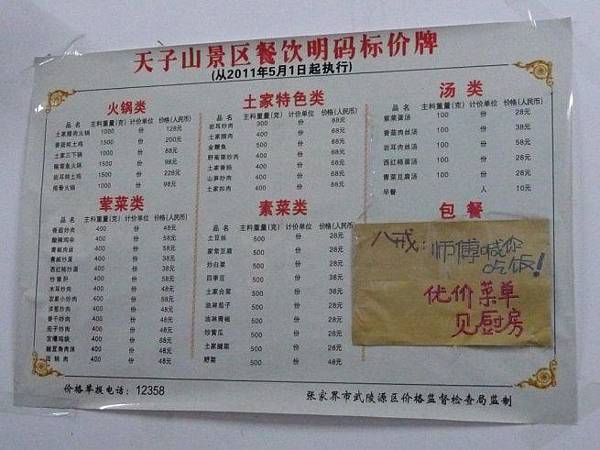 天子山景区餐饮明码标价牌
(从2011年5月1日起执行)
火锅类
品名 主料重量(克) 计价单位 价格(人民币)
土家腊肉火锅 1000 份 128元
香菇炖土鸡 1500 份 200元
土家三下锅 1000 份 88元
1500 份 98元
岩耳炖土鸡 1500 份 228元
1000 份 98元
土家特色类
品名 主料重量(克) 计价单位 价格(人民币)
岩耳炒肉 300 份 88元
土家腊肉 400 份 68元
份 68元
400 份 68元
土家香肠 400 份 68元
山笋炒肉 400 份 68元
土家扣肉 400 份 68元
汤类
品名 主料重量(克) 计价单位 价格(人民币)
紫菜蛋汤 100 份 28元
香菇肉丝汤 100 份 38元
岩耳肉丝汤 100 份 58元
西红柿蛋汤 100 份 28元
青菜豆腐汤 100 份 28元
早餐 人 10元
荤菜类
品名 主料重量(克) 计价单位 价格(人民币)
香菇炒肉 400 份 58元
400 份 58元
青椒肉丝 400 份 58元
青椒炒蛋 400 份 38元
西红柿炒蛋 400 份 38元
400 份 58元
木耳炒肉 400 份 48元
农家小炒肉 400 份 58元
400 份 48元
香干炒肉 400 份 48元
茄子炒肉 400 份 48元
400 份 68元
酸豆角肉沫 400 份 48元
回锅肉 400 份 48元
素菜类
品名 主料重量(克) 计价单位 价格(人民币)
土豆丝 500 份 28元
家常豆腐 500 份 28元
炒白菜 500 份 28元
四季豆 500 份 28元
土家合菜 500 份 38元
油淋茄子 500 份 28元
油淋青椒 500 份 28元
炒黄瓜 500 份 28元
土家酸菜 500 份 28元
野菜 500 份 48元
包餐
八戒:师傅喊你
吃饭!
优价菜单
见厨房
价格举报电话:12358
张家界市武陵源区价格监督检查局监制